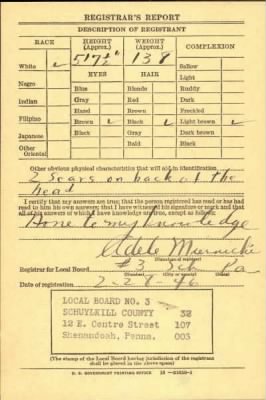 REGISTRAR'S REPORT
DESCRIPTION OF REGISTRANT
RACE
HEIGHT (Approx.)
WEIGHT (Approx.)
COMPLEXION
White ✓
5' 7½"
138
Sallow
Light
EYES
HAIR
Negro
Blue
Blonde
Ruddy
Indian
Gray
Red
Dark
Hazel
Brown
Freckled
Filipino
Brown ✓
Black ✓
Light brown ✓
Japanese
Black
Gray
Dark brown
Other
Oriental
Bald
Black
Other obvious physical characteristics that will aid in identification
2 Scars on back of the
head
I certify that my answers are true; that the person registered has read or has had
read to him his own answers; that I have witnessed his signature or mark and that
all of his answers of which I have knowledge are true, except as follows:
None to my knowledge
Adele
(Signature of registrar)
Registrar for Local Board #3 Sch Pa
(Number) (City or county) (State)
Date of registration 2-28-46
LOCAL BOARD NO. 3
SCHUYLKILL COUNTY 32
12 E. Centre Street 107
Shenandoah, Penna. 003
(The stamp of the Local Board having jurisdiction of the registrant
shall be placed in the above space.)
U. S. GOVERNMENT PRINTING OFFICE